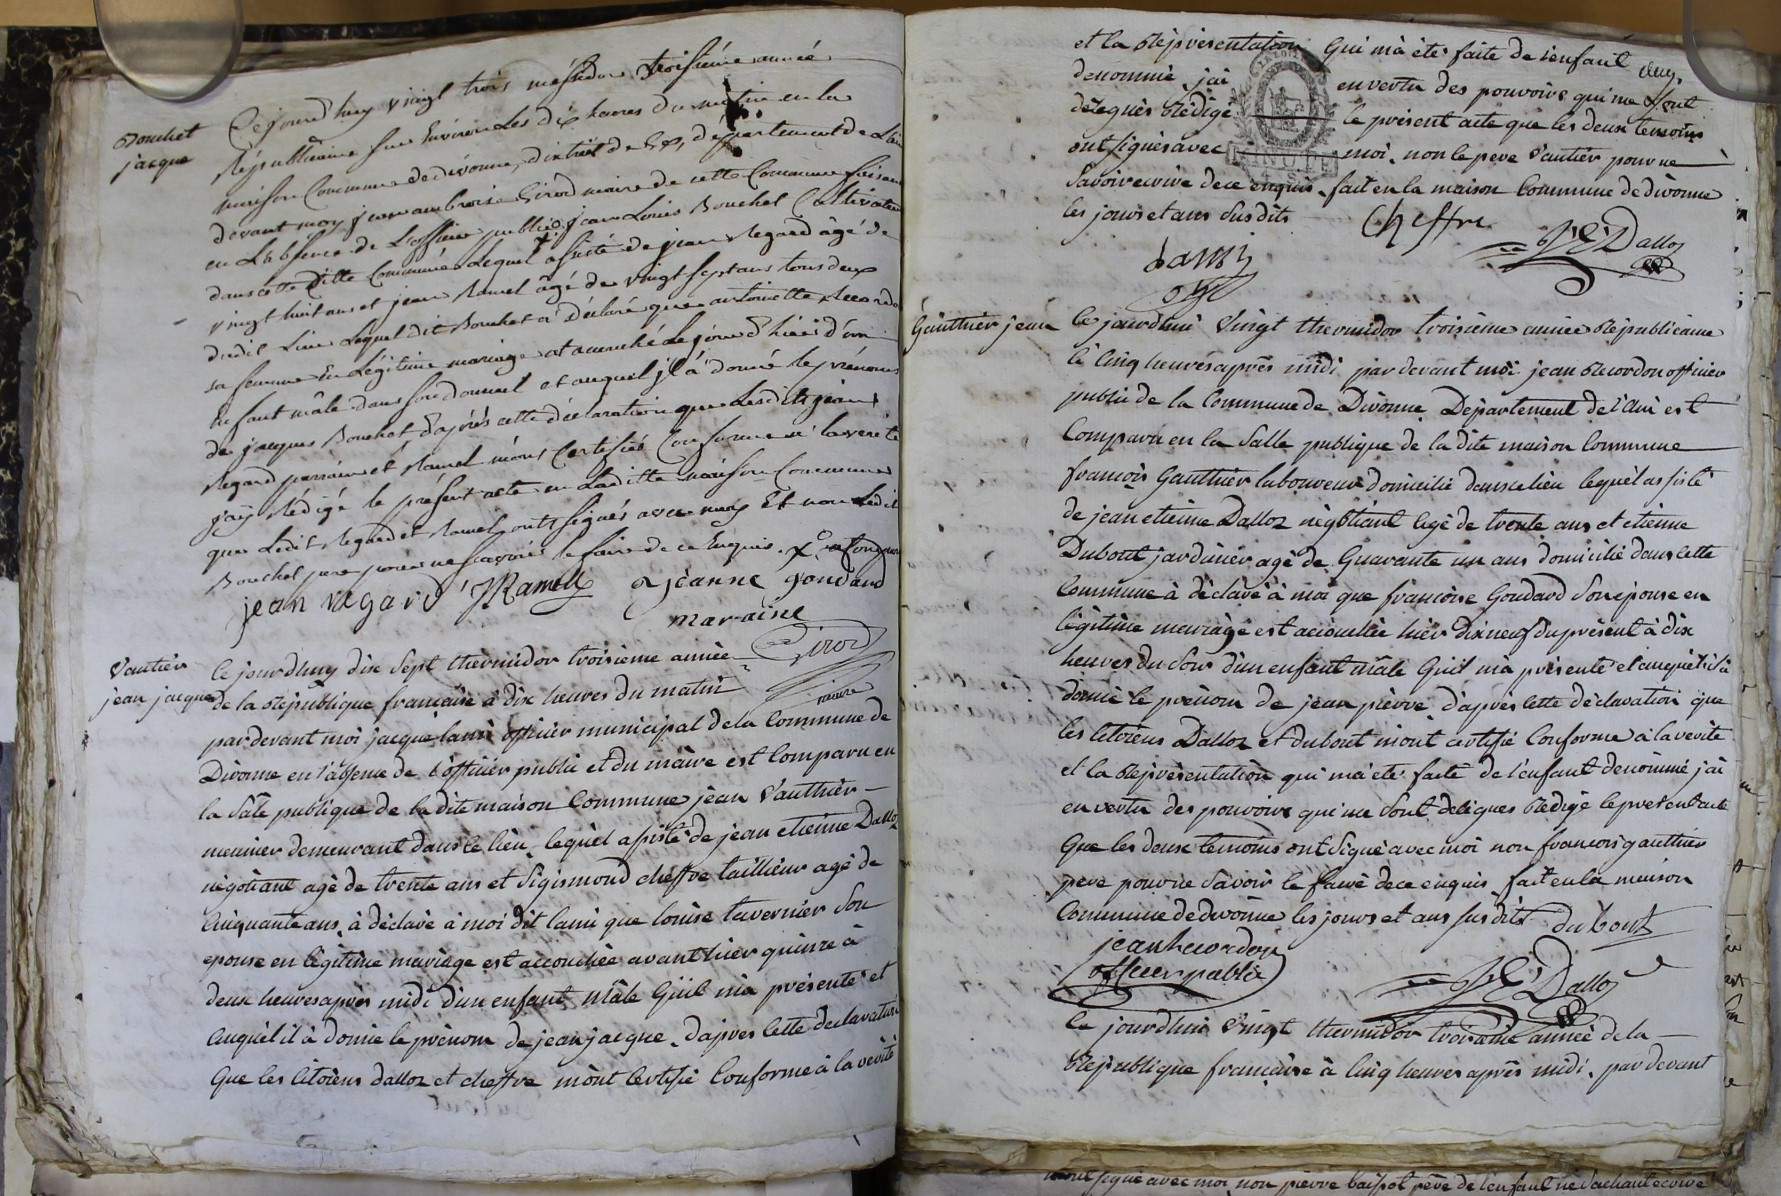 Bouchet
jacque
Cejourd'huy vingt trois messidor troisiéme année
Républicaine sur Environ Les dix heures du matin en la
maison Commune de divonne, district de Gex, département de L'ain
devant moy jean ambroise Girod maire de cette Commune faisant
en L'absence de L'officier public, jean Louis Bouchet Cultivateur
dans cette ditte Commune Lequel assisté de jean Regard âgé de
vingt huit ans et jean Ramel âgé de vingt sept ans tous deux
dudit Lieu Lequel dit Bouchet a déclaré que antoinette
sa femme En Légitime mariage est accouchée Le jour d'hier d'un
Enfant mâle dans son domicil et auquel jl â donné le prénoms
de jacques Bouchet, d'aprés cette déclaration que Lesdits jean
Regard parrain et Ramel m'ont Certifiés Conforme a la verité
j'ay Rédigé le présent acte en Laditte maison Commune
que Ledit Regard et Ramel ont signés avec moy Et non Ledit
Bouchet pere pour ne sçavoir le faire de ce Enquis.
jean regard JRamel jéanne goudard
maraine
Girod
maire
Vautier
jean jacque
Ce jourdhuy dix sept thermidor troisieme année
de la République française à dix heures du matin
pardevant moi jacque lami officier municipal de la Commune de
Divonne en l'absence de l'officier public et du maire est Comparu en
la Sale publique de la dite maison Commune jean Vauthier
meunier demeurant dans ce lieu, lequel assisté de jean etienne Dalloz
négotiant agé de trente ans et Sigismond cheffre taillieur agé de
Cinquante ans, à déclaré à moi dit lami que louise tavernier Son
epouse en légitime mariage est accouchée avant hier quinze à
deux heures après midi d'un enfant mâle Qu'il m'a présenté et
Auquel il à donné le prénom de jean jacque. d'apres Cette declaration
Que les Citoiens dalloz et cheffre m'ont Certifié Conforme à la verité
et la Réprésentation Qui m'a été faite de l'enfant
denommé, jai en vertu des pouvoirs qui me Sont
délegués Rédigé le présent acte que les deux temoins
ont signés avec moi, non le pere Vautier pour ne
Savoir ecrire de ce enquis, fait en la maison Commune de divonne
les jours et ans Susdits
Cheffre
JEDalloz
Lamy
off
Gauthier jean
Ce jourdhui Vingt thermidor troisieme année Républicaine
à Cinq heures après midi, par devant moi jean Recordon officier
public de la Commune de Divonne Département de l'Ain est
Comparu en la Salle publique de la dite maison Commune
françois Gauthier laboureur domicilié dans ce lieu lequel assisté
de jean etienne Dalloz négotiant Agé de trente ans et etienne
Dubout jardinier agé de Quarante un ans domicilié dans cette
Commune à déclaré à moi que françoise Goudard Son epouse en
légitime mariage est accouchée hier dix neuf du présent à dix
heures du Soir d'un enfant mâle Qu'il m'a présenté et auquel il à
donné le prénom de jean pierre. d'apres Cette déclaration que
les Citoiens Dalloz et dubout m'ont certifié Conforme à la verité
et la Réprésentation qui m'a eté faite de l'enfant denommé j'ai
en vertu des pouvoirs qui me Sont délegues Rédigé le present acte
Que les deux temoins ont Signé avec moi non francois gauthier
pere pour ne Savoir le faire de ce enquis, fait en la maison
Commune de divonne les jours et ans Susdits
dubout
jean Recordon
officier public
JEDalloz
Ce jourdhui Vingt thermidor troisieme année de la
République française à Cinq heures après midi, par devant
m'ont signé avec moi non pierre baissot père de l'enfant ne Sachant ecrire